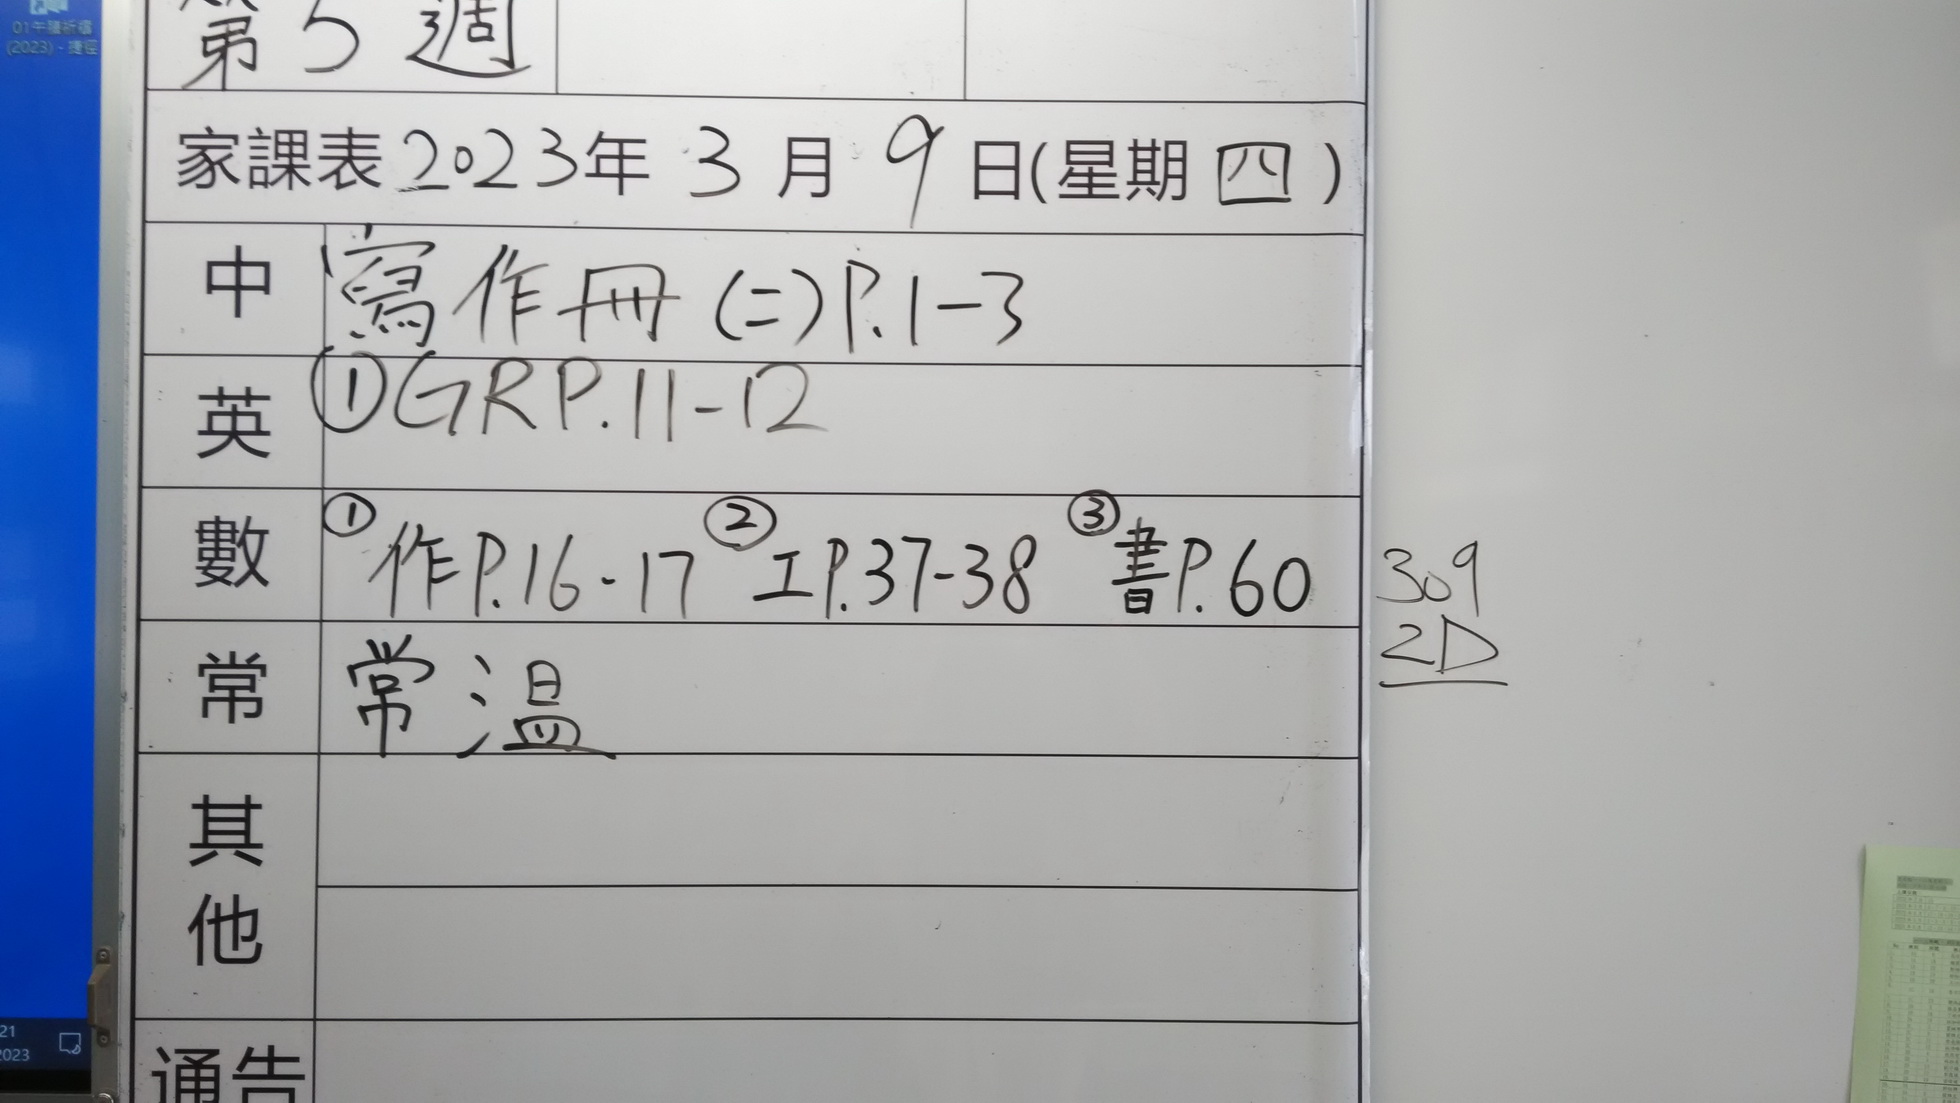 01午膳祈禱
(2023) - 捷徑
第5週
家課表2023年3月9日(星期四)
中 寫作冊(二)P.1-3
英 ①GRP.11-12
數 ①作P.16-17 ②工P.37-38 ③書P.60
309
2D
常 常溫
其他
通告
21
2023